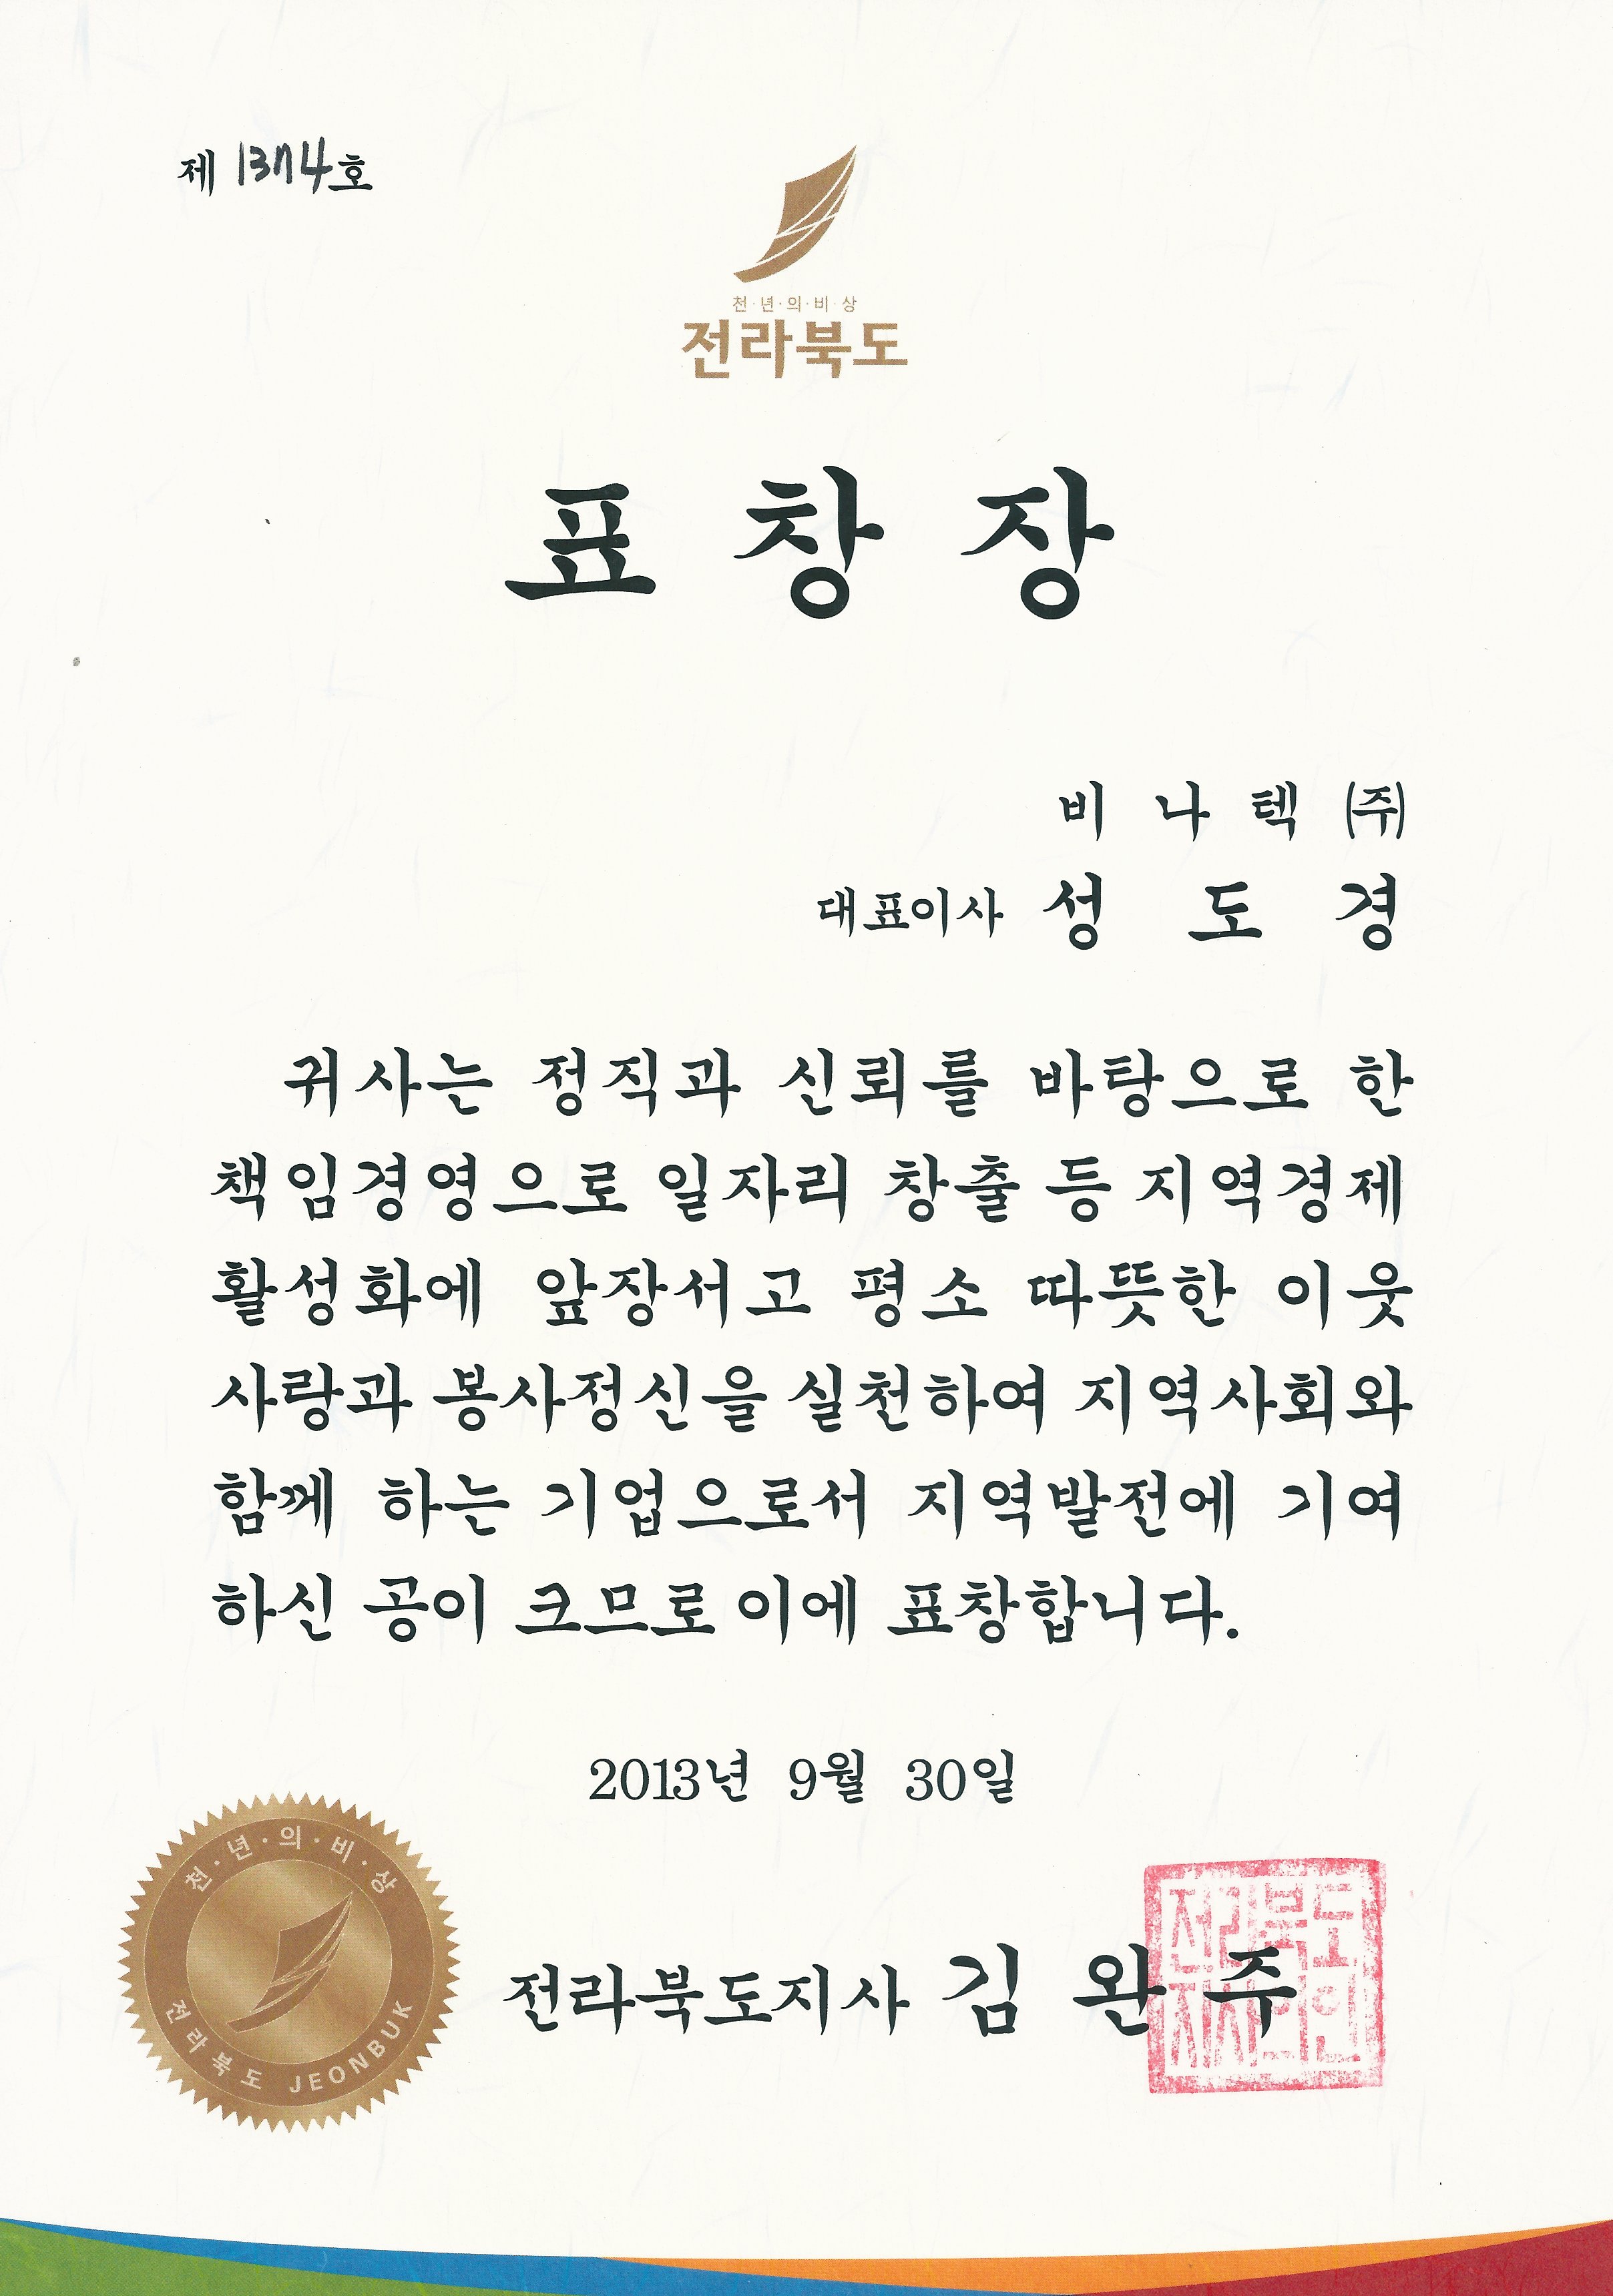 제 1374호
천·년·의·비·상
전라북도
표 창 장
비 나 텍 ㈜
대표이사 성 도 경
귀사는 정직과 신뢰를 바탕으로 한
책임경영으로 일자리 창출 등 지역경제
활성화에 앞장서고 평소 따뜻한 이웃
사랑과 봉사정신을 실천하여 지역사회와
함께 하는 기업으로서 지역발전에 기여
하신 공이 크므로 이에 표창합니다.
2013년 9월 30일
천·년·의·비·상
전라북도 JEONBUK
전라북도지사 김 완 주
전라북도
지사의인